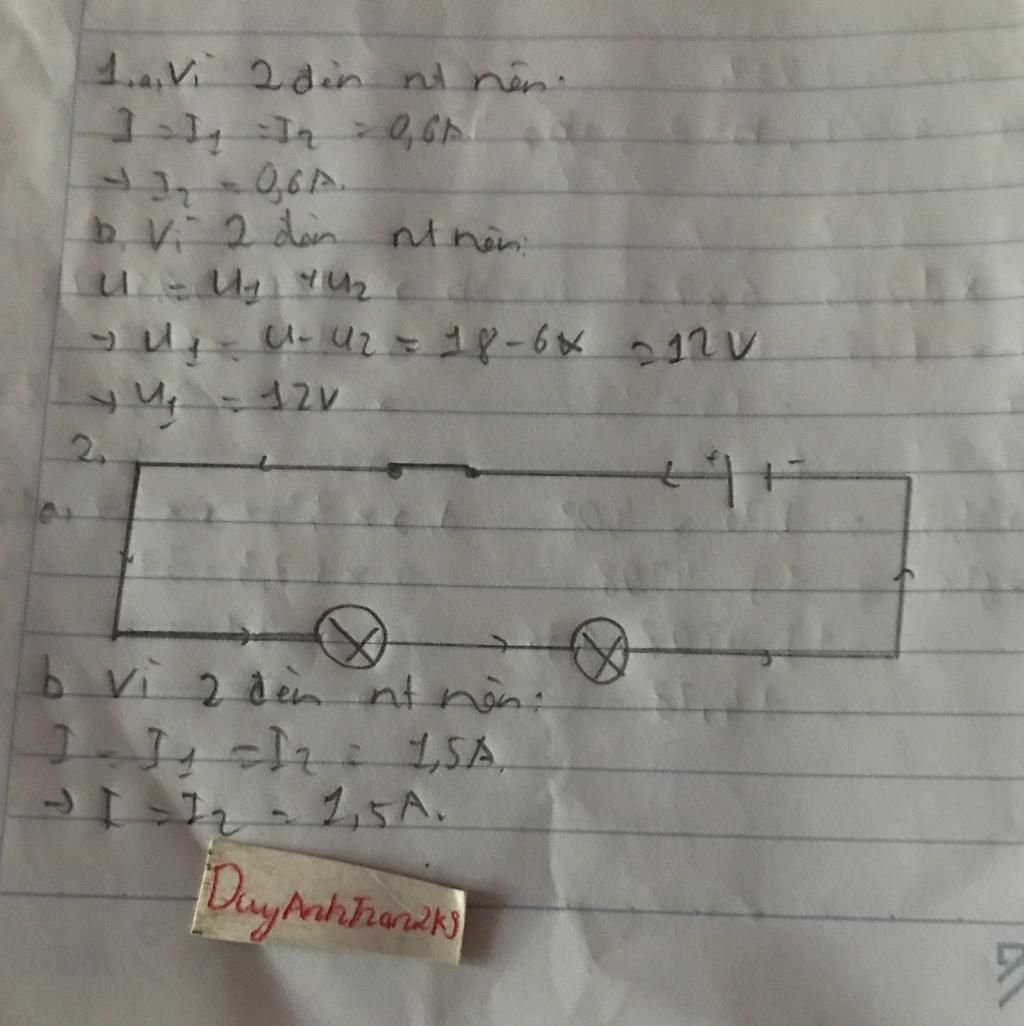 1.a, Vì 2 đèn nt nên.
I = I1 = I2 = 0,6A
→ I2 = 0,6A.
b. Vì 2 đèn nt nên:
U = U1 + U2
→ U1 = U - U2 = 18 - 6 = 12V
→ U1 = 12V
2.
+ -
a.
b Vì 2 đèn nt nên:
I = I1 = I2 = 1,5A.
→ I = I2 = 1,5A.
DuyAnhTran2k9